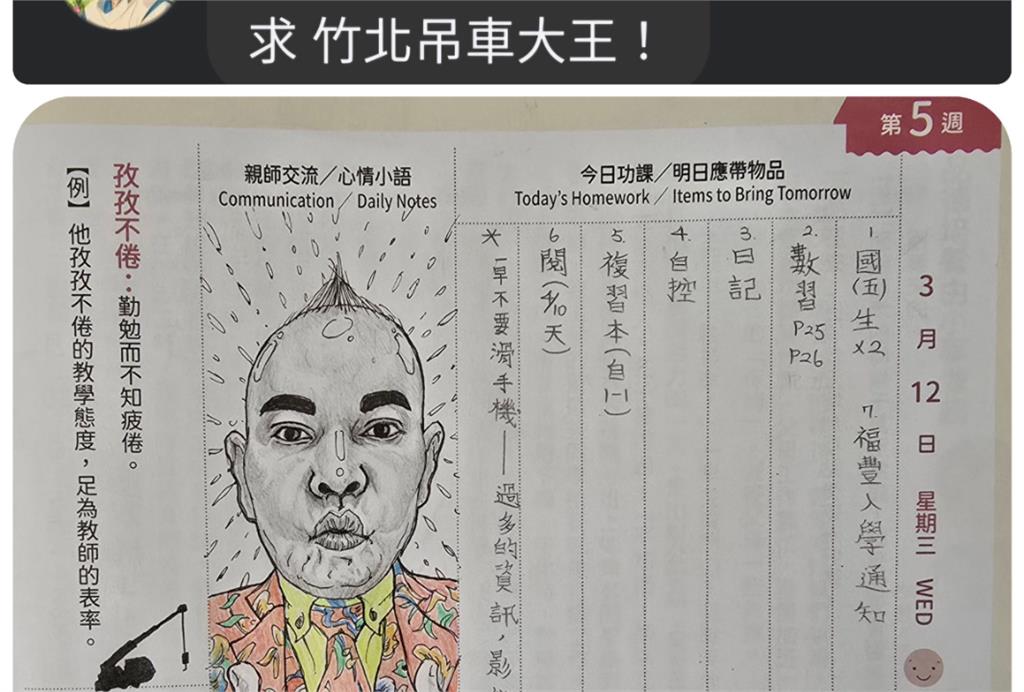 求 竹北吊車大王！
第5週
3月12日 星期三 WED
今日功課／明日應帶物品
Today's Homework／Items to Bring Tomorrow
1. 國(五)生x2
7. 福豐入學通知
2. 數習 P25 P26
3. 日記
4. 自控
5. 複習本(自1-1)
6. 閱(4/10天)
＊一早不要滑手機——過多的資訊，影
親師交流／心情小語
Communication／Daily Notes
孜孜不倦：勤勉而不知疲倦。
【例】他孜孜不倦的教學態度，足為教師的表率。